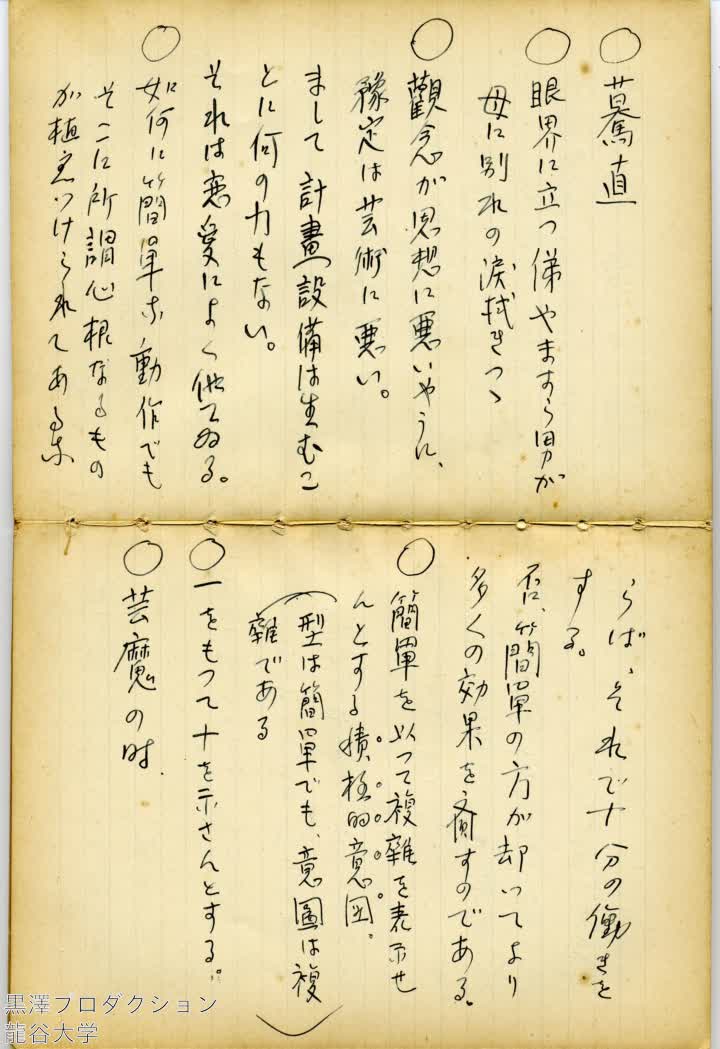 ○ 驀直
○ 眼界に立つ俤やますら男が
母に別れの涙拭きつゝ
○ 觀念が思想に悪いやうに、
豫定は芸術に悪い。
まして計畫設備は生むこ
とに何の力もない。
それは恋愛によく似てゐる。
○ 如何に簡單な動作でも
そこに所謂心根なるもの
が植ゑつけられてあるな
らば、それで十分の働きを
する。
否、簡單の方が却いてより
多くの効果を齎すのである。
○ 簡單を以つて複雜を表示せ
んとする積極的意図。
(型は簡單でも、意圖は複
雜である)
○ 一をもつて十を示さんとする。
○ 芸魔の时
黒澤プロダクション
龍谷大学